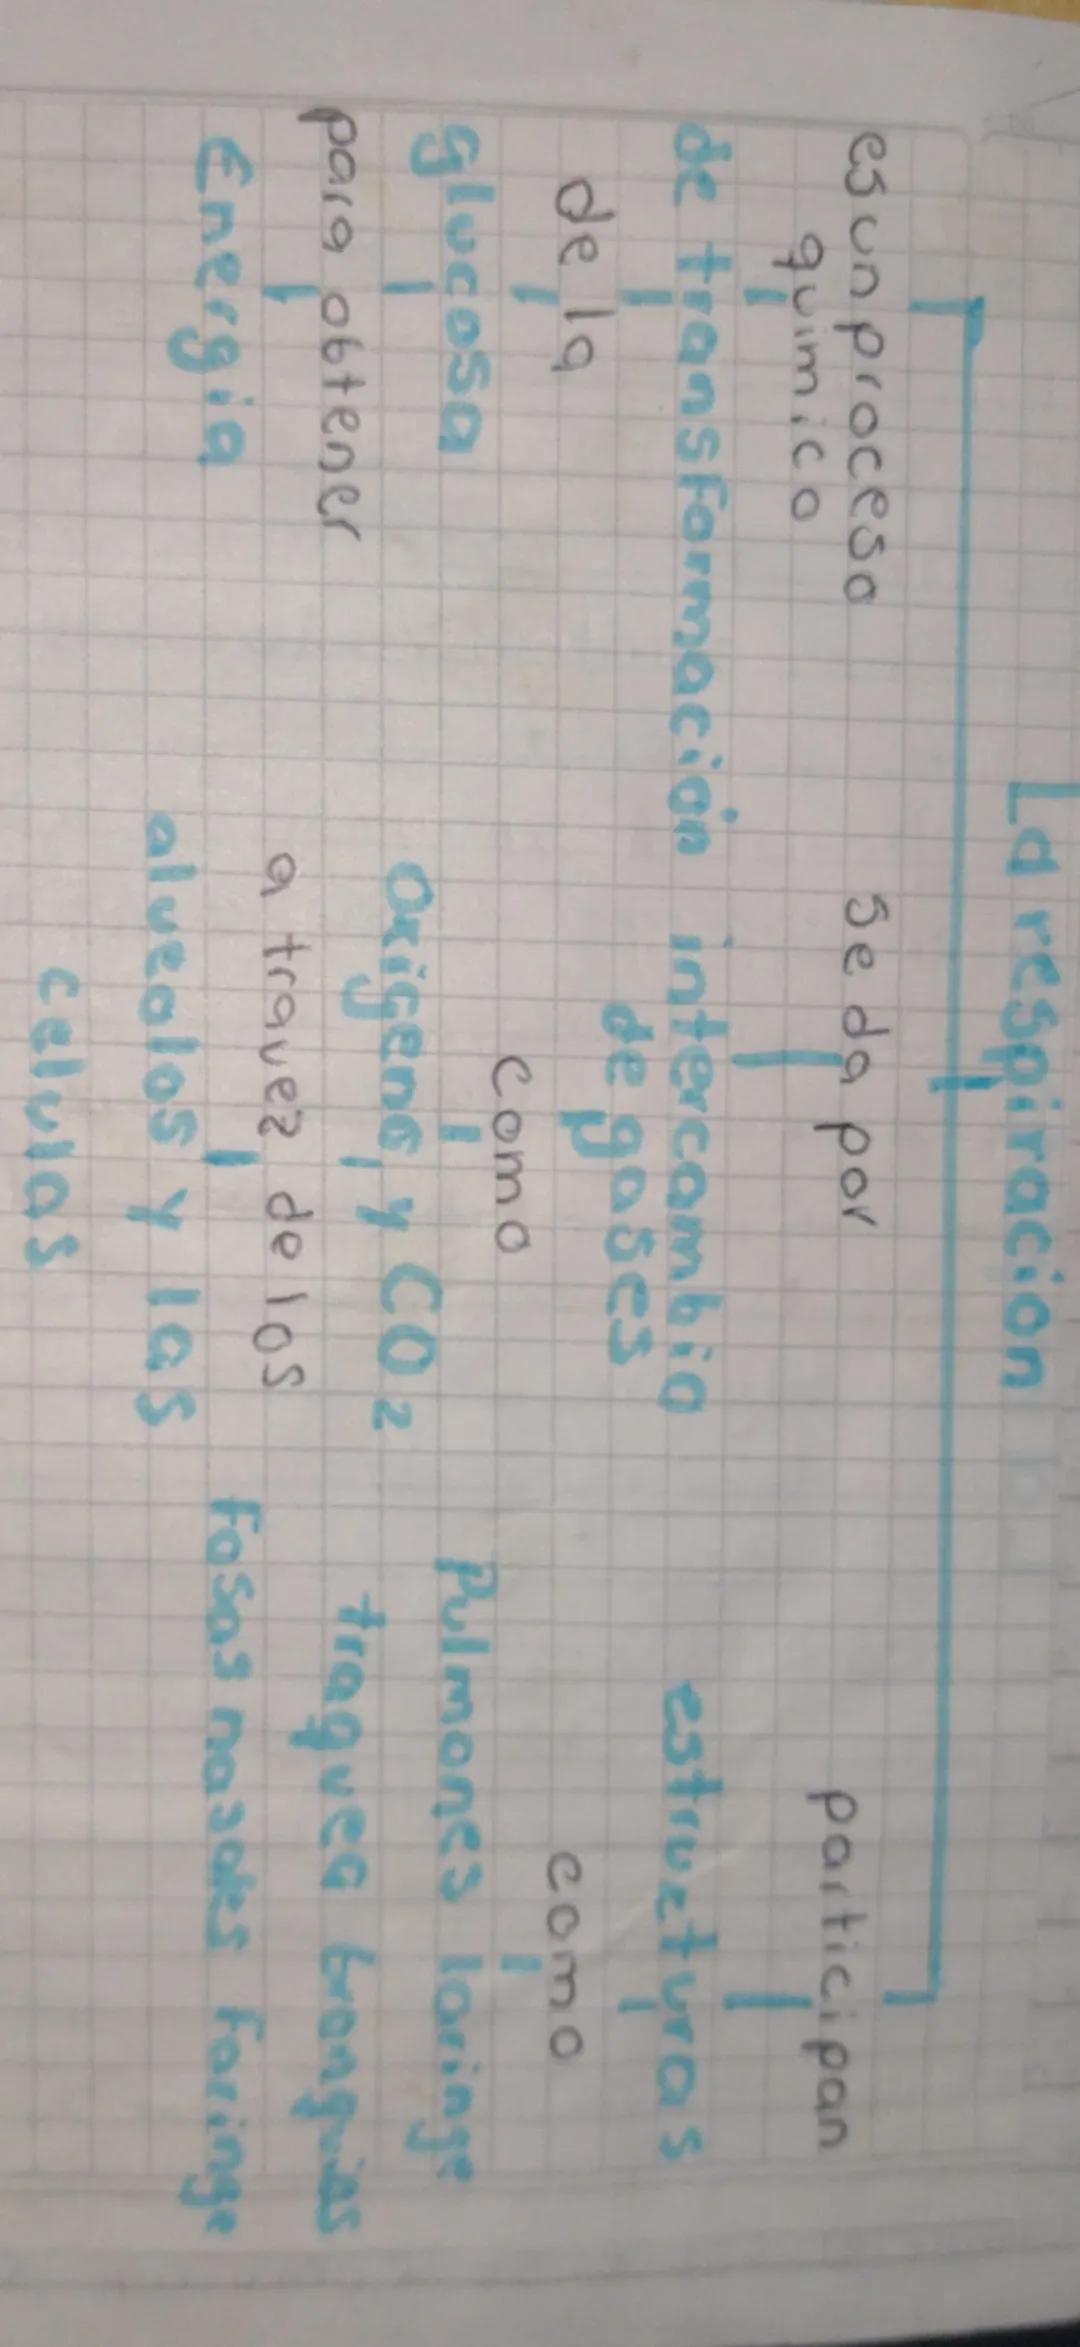 La respiracion
es un proceso
quimico
de transformacion
de la
glucosa
para obtener
Energia
se da por
intercambio
de gases
como
Oxigeno y CO2
a travez de los
alveolos y las
celulas
participan
estructuras
como
Pulmones laringe
traquea bronquios
fosas nasales faringe